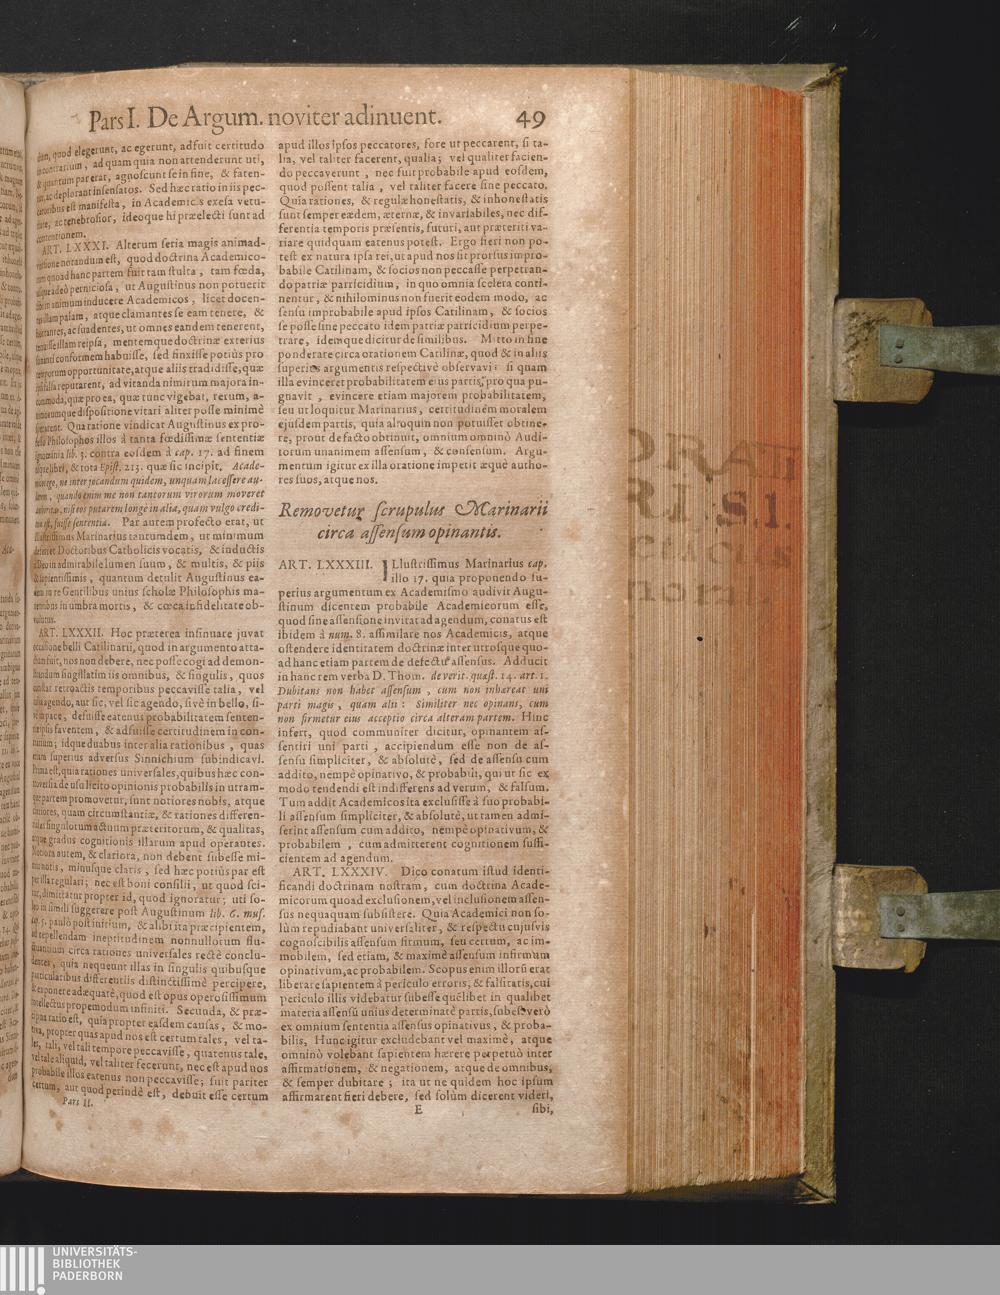 Pars I. De Argum. noviter adinuent. 49
dum, quod elegerunt, ac egerunt, adfuit certitudo
in contrarium, ad quam quia non attenderunt uti,
& quantum par erat, agnoscunt se in fine, & faten-
tur, ac deplorant insensatos. Sed hæc ratio in iis pec-
catoribus est manifesta, in Academicis exesa vetu-
state, ac tenebrosior, ideoque hi præelecti sunt ad
contentionem.
ART. LXXXI. Alterum seria magis animad-
versione notandum est, quod doctrina Academico-
rum quoad hanc partem fuit tam stulta, tam fœda,
usque adeò perniciosa, ut Augustinus non potuerit
sibi in animum inducere Academicos, licet docen-
tes illam palam, atque clamantes se eam tenere, &
hortantes, ac suadentes, ut omnes eandem tenerent,
tenuisse illam reipsa, mentemque doctrinæ exterius
sonanti conformem habuisse, sed finxisse potiùs pro
temporum opportunitate, atque aliis tradidisse, quæ
ipsi falsa reputarent, ad vitanda nimirum majora in-
commoda, quæ pro ea, quæ tunc vigebat, rerum, a-
nimorumque dispositione vitari aliter posse minimè
sperarent. Qua ratione vindicat Augustinus ex pro-
fesso Philosophos illos à tanta fœdissimæ sententiæ
ignominia lib. 3. contra eosdem à cap. 17. ad finem
usque libri, & tota Epist. 213. quæ sic incipit, Acade-
micos ego, ne inter jocandum quidem, unquam lacessere au-
derem, quando enim me non tantorum virorum moveret
authoritas, nisi eos putarem longè in alia, quam vulgo credi-
tum est, fuisse sententia. Par autem profecto erat, ut
Illustrissimus Marinarius tantumdem, ut minimum
deferret Doctoribus Catholicis vocatis, & inductis
à Deo in admirabile lumen suum, & multis, & piis
& sapientissimis, quantum detulit Augustinus ea-
dem in re Gentilibus unius scholæ Philosophis ma-
nentibus in umbra mortis, & cœca infidelitate ob-
volutus.
ART. LXXXII. Hoc præterea insinuare juvat
occasione belli Catilinarii, quod in argumento atta-
ctum fuit, nos non debere, nec posse cogi ad demon-
strandum singillatim iis omnibus, & singulis, quos
constat retroactis temporibus peccavisse talia, vel
talia agendo, aut sic, vel sic agendo, sivè in bello, si-
ve in pace, defuisse eatenus probabilitatem senten-
tiæ ipsis faventem, & adfuisse certitudinem in con-
trarium; idque duabus inter alia rationibus, quas
etiam superius adversus Sinnichium subindicavi.
Prima est, quia rationes universales, quibus hæc con-
troversia de usu licito opinionis probabilis in utram-
que partem promovetur, sunt notiores nobis, atque
clariores, quam circumstantiæ, & rationes differen-
tiales singulorum actuum præteritorum, & qualitas,
atque gradus cognitionis illarum apud operantes.
Notiora autem, & clariora, non debent subesse mi-
nus notis, minusque claris, sed hæc potiùs par est
per illa regulari; nec est boni consilii, ut quod sci-
tur, dimittatur propter id, quod ignoratur; uti so-
leo in simili suggerere post Augustinum lib. 6. mus.
cap. 5. paulò post initium, & alibi ita præcipientem,
ad repellendam ineptitudinem nonnullorum flu-
ctuantium circa rationes universales rectè conclu-
dentes, quia nequeunt illas in singulis quibusque
particularibus differentiis distinctissimè percipere,
& exponere adæquatè, quod est opus operosissimum
intellectus propemodum infiniti. Secunda, & præ-
cipua ratio est, quia propter easdem causas, & mo-
tiva, propter quas apud nos est certum tales, vel ta-
les, tali, vel tali tempore peccavisse, quatenus tale,
vel tale aliquid, vel taliter fecerunt, nec est apud nos
probabile illos eatenus non peccavisse; fuit pariter
certum, aut quod perindè est, debuit esse certum
Pars II.
apud illos ipsos peccatores, fore ut peccarent, si ta-
lia, vel taliter facerent, qualia; vel qualiter facien-
do peccaverunt, nec fuit probabile apud eosdem,
quod possent talia, vel taliter facere sine peccato.
Quia rationes, & regulæ honestatis, & inhonestatis
sunt semper eædem, æternæ, & invariabiles, nec dif-
ferentia temporis præsentis, futuri, aut præteriti va-
riare quidquam eatenus potest. Ergo fieri non po-
test ex natura ipsa rei, ut apud nos sit prorsus impro-
babile Catilinam, & socios non peccasse perpetran-
do patriæ parricidium, in quo omnia scelera conti-
nentur, & nihilominus non fuerit eodem modo, ac
sensu improbabile apud ipsos Catilinam, & socios
se posse sine peccato idem patriæ parricidium perpe-
trare, idemque dicitur de similibus. Mitto in fine
ponderare circa orationem Catilinæ, quod & in aliis
superioris argumentis respectivè observavi: si quam
illa evinceret probabilitatem eius partis, pro qua pu-
gnavit, evincere etiam majorem probabilitatem,
seu ut loquitur Marinarius, certitudinem moralem
ejusdem partis, quia alioquin non potuisset obtine-
re, prout de facto obtinuit, omnium omninò Audi-
torum unanimem assensum, & consensum. Argu-
mentum igitur ex illa oratione impetit æquè autho-
res suos, atque nos.
Removetur scrupulus Marinarii
circa assensum opinantis.
ART. LXXXIII. ILlustrissimus Marinarius cap.
illo 17. quia proponendo su-
perius argumentum ex Academismo audivit Augu-
stinum dicentem probabile Academicorum esse,
quod sine assensione invitat ad agendum, conatus est
ibidem à num. 8. assimilare nos Academicis, atque
ostendere identitatem doctrinæ inter utrosque quo-
ad hanc etiam partem de defectu assensus. Adducit
in hanc rem verba D. Thom. de verit. quæst. 14. art. 1.
Dubitans non habet assensum, cum non inhæreat uni
parti magis, quam alii: Similiter nec opinans, cum
non firmetur eius acceptio circa alteram partem. Hinc
infert, quod communiter dicitur, opinantem as-
sentiri uni parti, accipiendum esse non de as-
sensu simpliciter, & absolutè, sed de assensu cum
addito, nempè opinativo, & probabili, qui ut sic ex
modo tendendi est indifferens ad verum, & falsum.
Tum addit Academicos ita exclusisse à suo probabi-
li assensum simpliciter, & absolutè, ut tamen admi-
serint assensum cum addito, nempè opinativum, &
probabilem, cum admitterent cognitionem suffi-
cientem ad agendum.
ART. LXXXIV. Dico conatum istud identi-
ficandi doctrinam nostram, cum doctrina Acade-
micorum quoad exclusionem, vel inclusionem assen-
sus nequaquam subsistere. Quia Academici non so-
lùm repudiabant universaliter, & respectu cujusvis
cognoscibilis assensum firmum, seu certum, ac im-
mobilem, sed etiam, & maximè assensum infirmum
opinativum, ac probabilem. Scopus enim illorū erat
liberare sapientem à periculo erroris, & falsitatis, cui
periculo illis videbatur subesse quēlibet in qualibet
materia assensū unius determinatè partis, subest verò
ex omnium sententia assensus opinativus, & proba-
bilis, Hunc igitur excludebant vel maximè, atque
omninò volebant sapientem hærere perpetuò inter
affirmationem, & negationem, atque de omnibus,
& semper dubitare; ita ut ne quidem hoc ipsum
affirmarent fieri debere, sed solùm dicerent videri,
E sibi,
UNIVERSITÄTS-
BIBLIOTHEK
PADERBORN